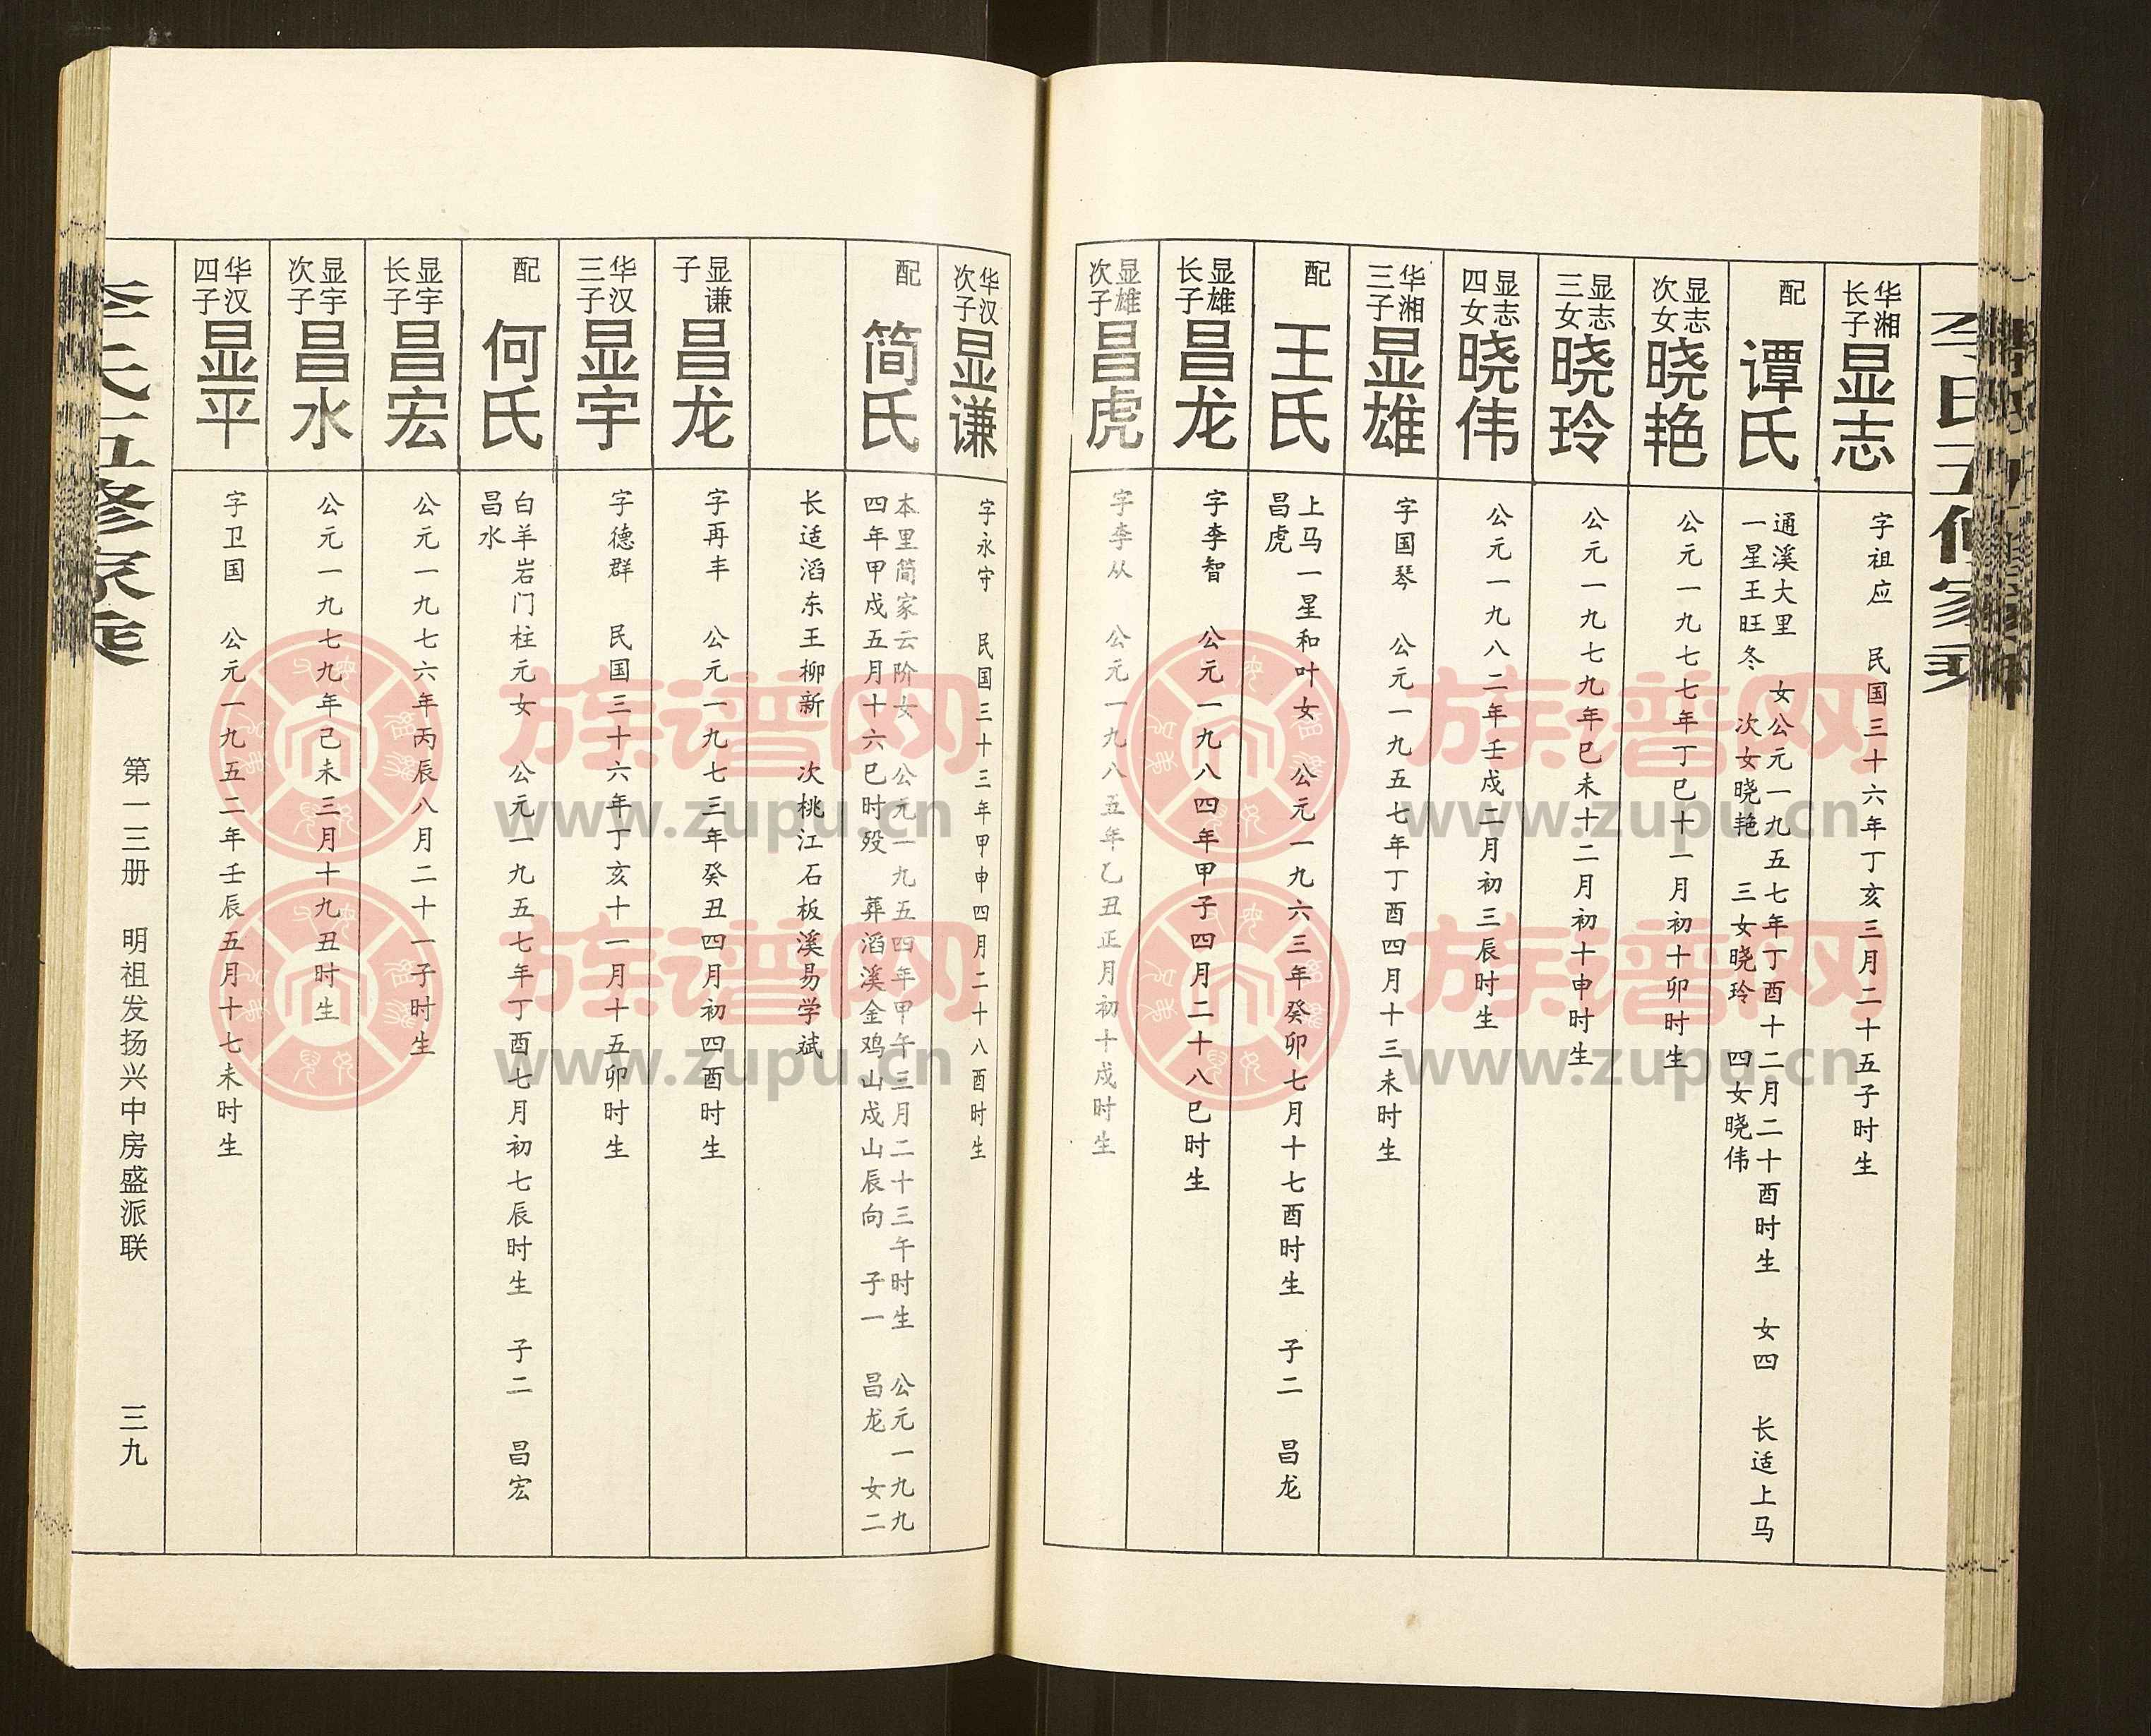 李氏五修家乘
华湘长子 显志 字祖应 民国三十六年丁亥三月二十五子时生
配 谭氏 通溪大里 女公元一九五七年丁酉十二月二十酉时生 女四 长适上马
一星王旺冬 次女晓艳 三女晓玲 四女晓伟
显志次女 晓艳 公元一九七七年丁巳十一月初十卯时生
显志三女 晓玲 公元一九七九年巳未十二月初十申时生
显志四女 晓伟 公元一九八二年壬戍二月初三辰时生
华湘三子 显雄 字国琴 公元一九五七年丁酉四月十三未时生
配 王氏 上马一星和叶女 公元一九六三年癸卯七月十七酉时生 子二 昌龙
昌虎
显雄长子 昌龙 字李智 公元一九八四年甲子四月二十八巳时生
显雄次子 昌虎 字李从 公元一九八五年乙丑正月初十戍时生
华汉次子 显谦 字永守 民国三十三年甲申四月二十八酉时生
配 简氏 本里简家云阶女 公元一九五四年甲午三月二十三午时生 公元一九九
四年甲戍五月十六巳时殁 葬滔溪金鸡山戍山辰向 子一 昌龙 女二
长适滔东王柳新 次桃江石板溪易学斌
显谦子 昌龙 字再丰 公元一九七三年癸丑四月初四酉时生
华汉三子 显宇 字德群 民国三十六年丁亥十一月十五卯时生
配 何氏 白羊岩门柱元女 公元一九五七年丁酉七月初七辰时生 子二 昌宏
昌水
显宇长子 昌宏 公元一九七六年丙辰八月二十一子时生
显宇次子 昌水 公元一九七九年己未三月十九丑时生
华汉四子 显平 字卫国 公元一九五二年壬辰五月十七未时生
李氏五修家乘 第一三册 明祖发扬兴中房盛派联 三九
族谱网
www.zupu.cn
族谱网
www.zupu.cn
族谱网
www.zupu.cn
族谱网
www.zupu.cn